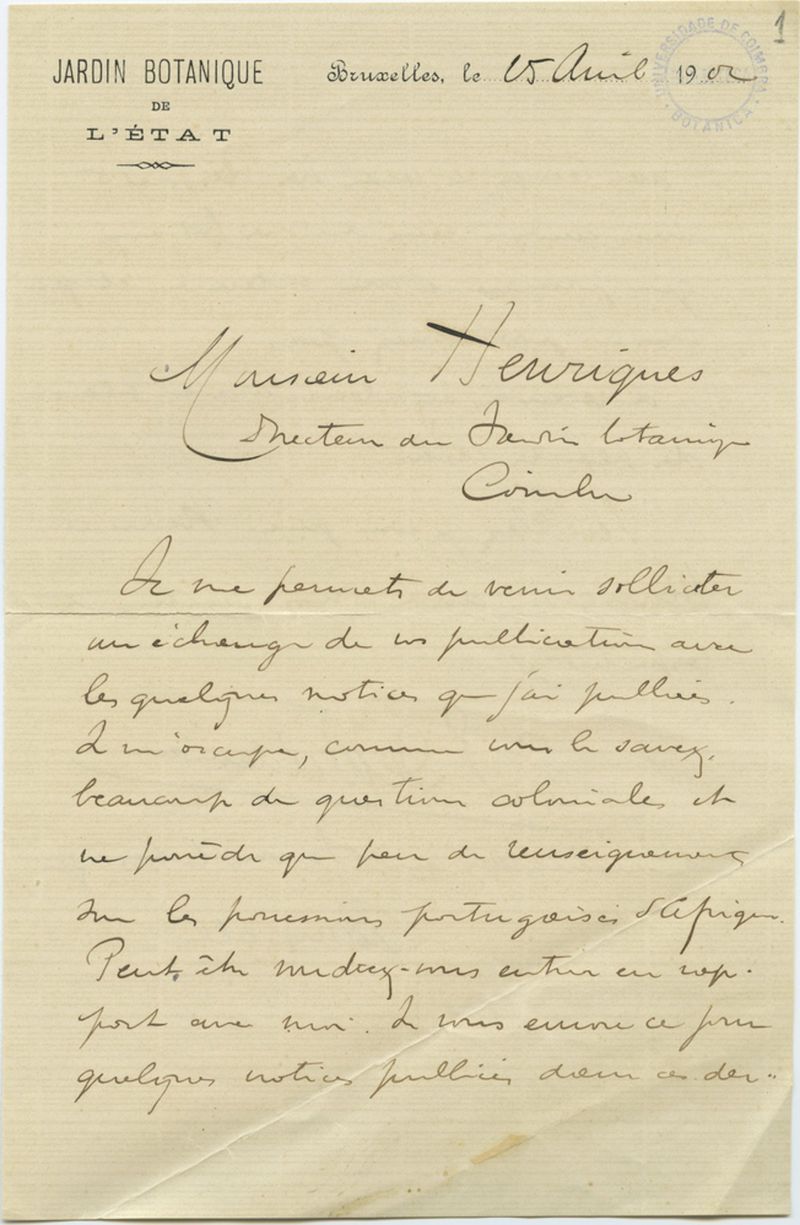 1
UNIVERSIDADE DE COIMBRA
BOTANICA
JARDIN BOTANIQUE
DE
L'ÉTAT
Bruxelles, le 15 Avril 1902
Monsieur Henriques
Directeur du Jardin botanique
Coimbre
Je me permets de venir solliciter
un échange de vos publications avec
les quelques notices que j'ai publiées.
Je m'occupe, comme vous le savez,
beaucoup de questions coloniales et
ne possède que peu de renseignements
sur les possessions portugaises d'Afrique.
Peut-être voudrez-vous entrer en rap-
port avec moi. Je vous envoie ce jour
quelques notices publiées dans ces der-